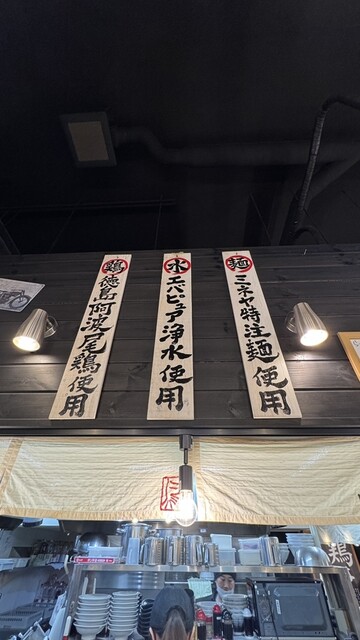 鶏
徳島阿波尾鶏使用
水
エバピュア浄水使用
麺
ミネヤ特注麺使用
鶏